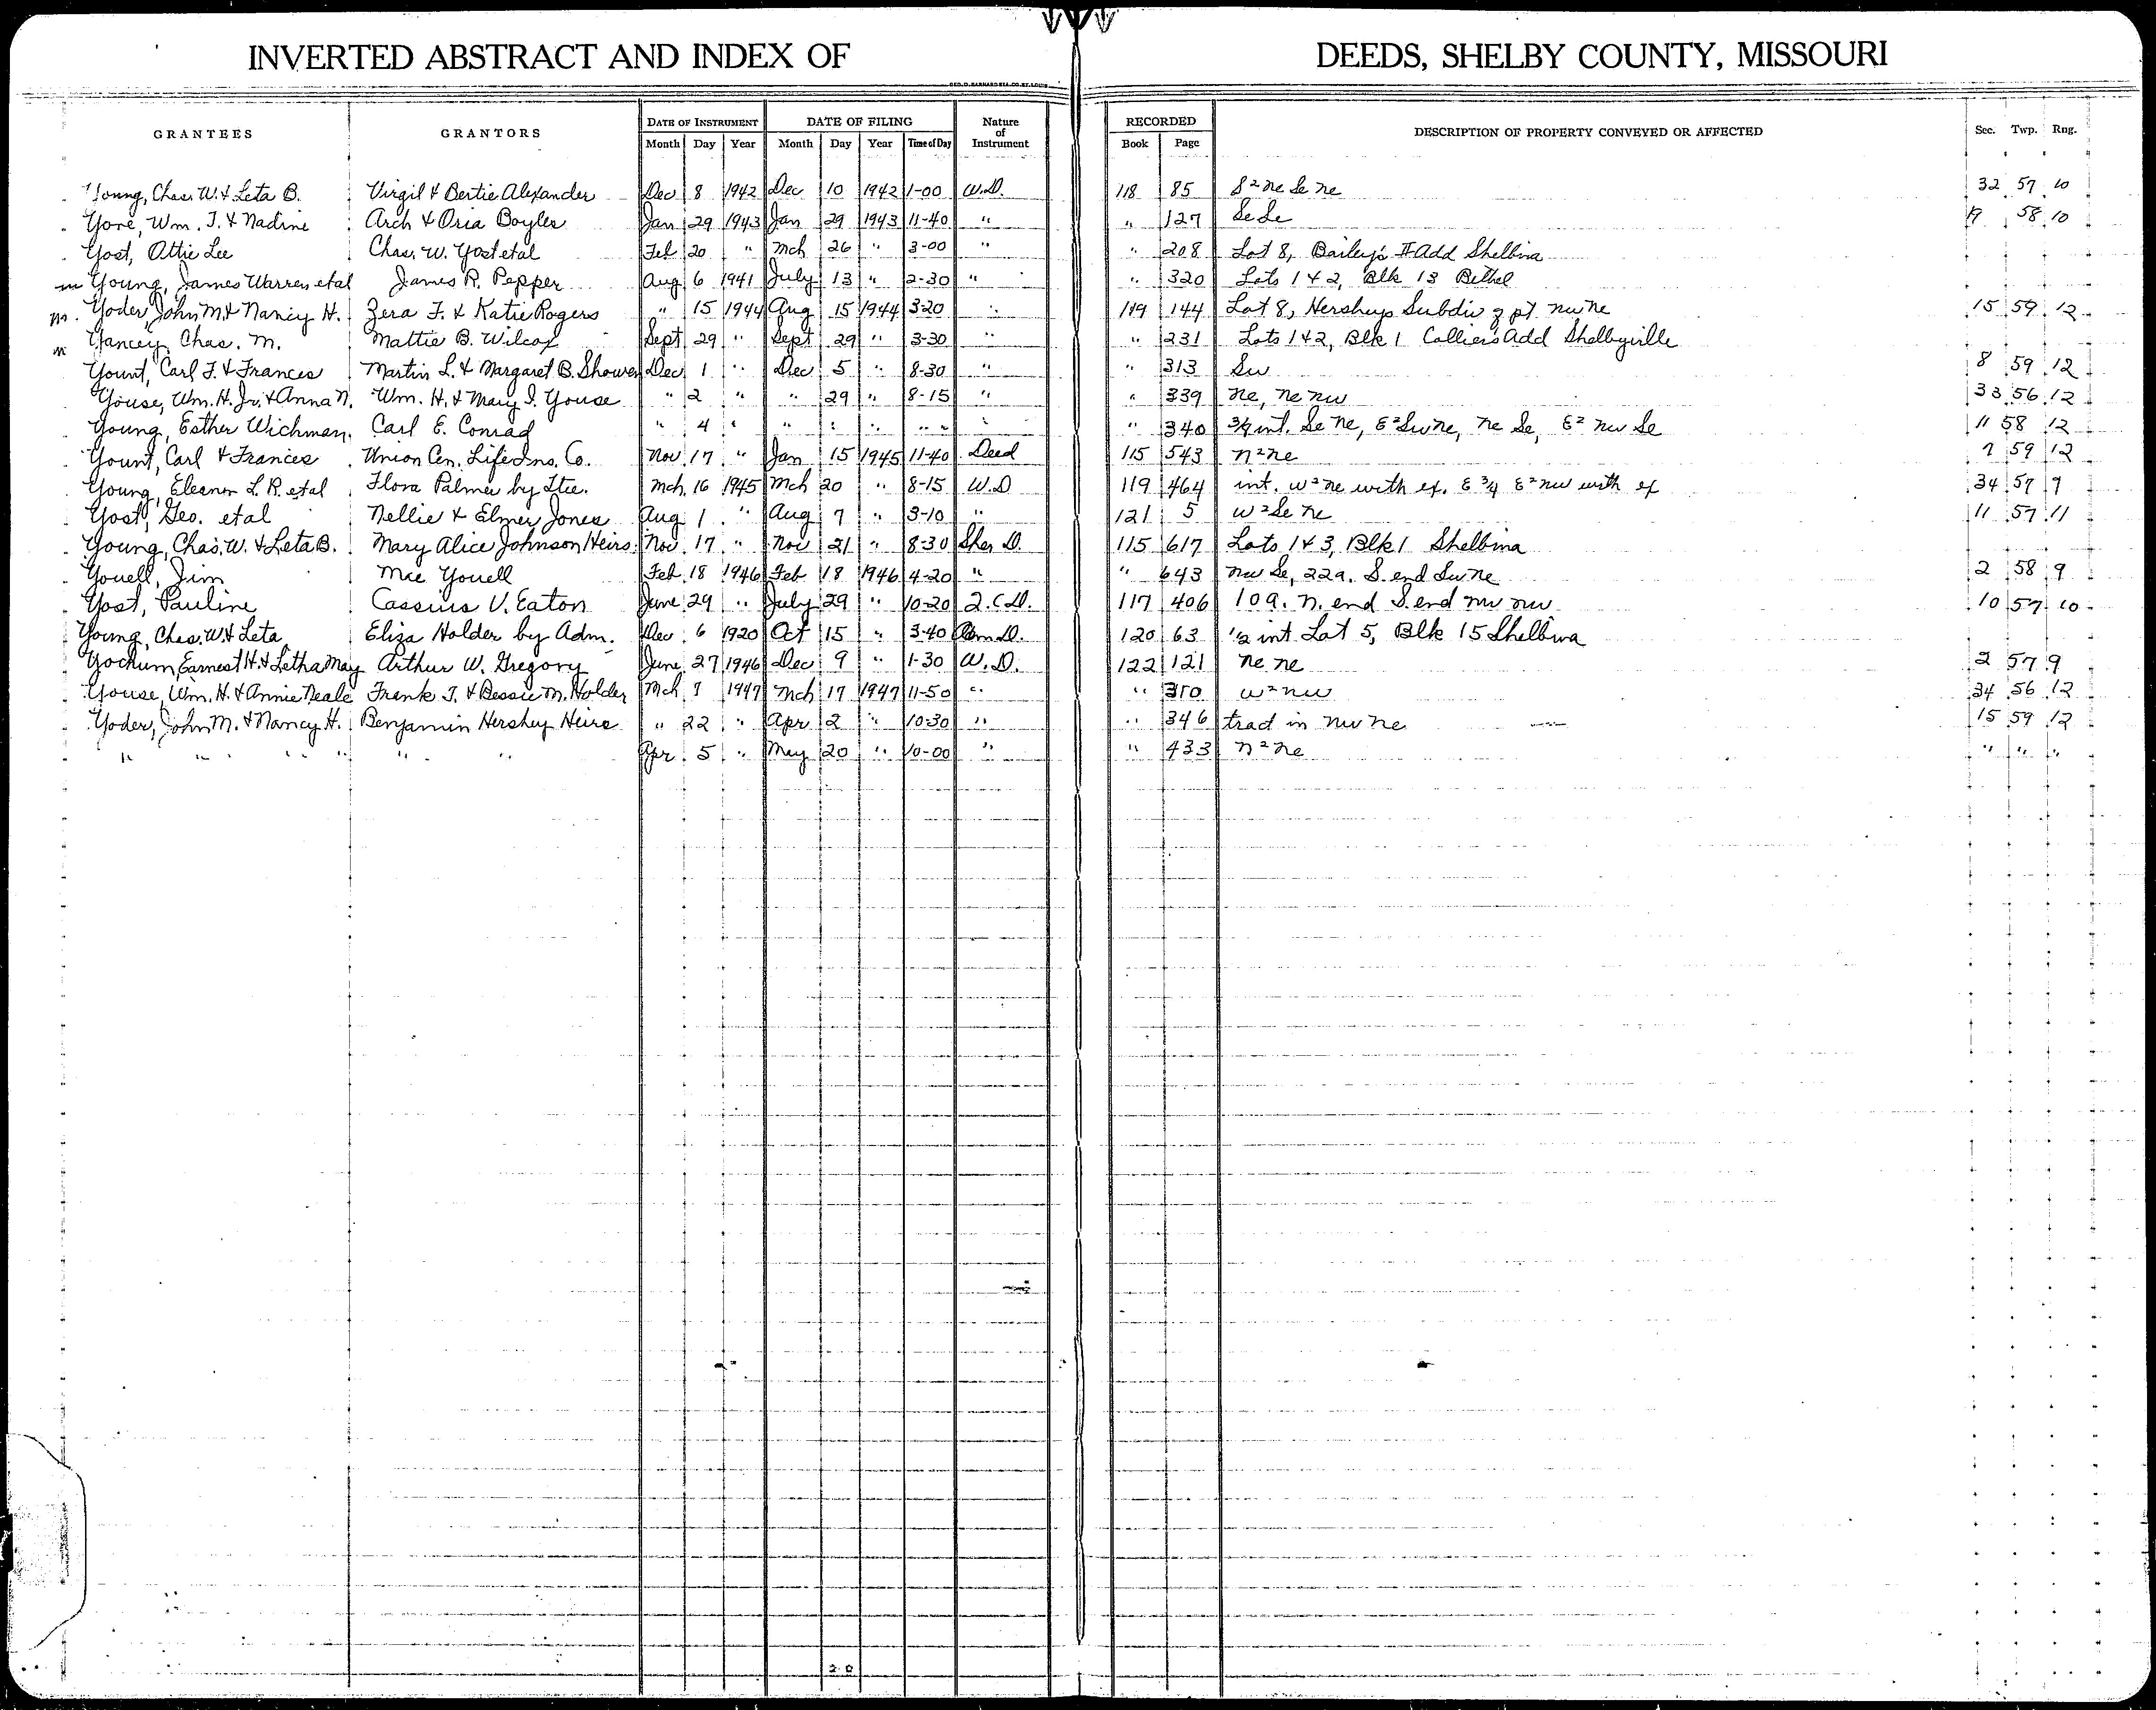 INVERTED ABSTRACT AND INDEX OF DEEDS, SHELBY COUNTY, MISSOURI
GRANTEES GRANTORS DATE OF INSTRUMENT DATE OF FILING Nature of Instrument RECORDED DESCRIPTION OF PROPERTY CONVEYED OR AFFECTED Sec. Twp. Rng.
Month Day Year Month Day Year Time of Day Book Page
Young, Chas. W. & Leta B. Virgil & Bertie Alexander Dec 8 1942 Dec 10 1942 1-00 W.D. 118 85 S² ne Se ne 32 57 10
Yore, Wm. J. & Nadine Arch & Oria Boyles Jan 29 1943 Jan 29 1943 11-40 " " 127 Se Se 58 10
Yost, Attie Lee Chas. W. Yost etal Feb 20 " Mch 26 " 3-00 " " 208 Lot 8, Bailey's II Add Shelbina
m Young, James Warren etal James R. Pepper Aug 6 1941 July 13 " 2-30 " " 320 Lots 1 & 2, Blk 13 Bethel
m. Yoder, John M. & Nancy H. Zera F. & Katie Rogers " 15 1944 Aug 15 1944 3-20 " 119 144 Lot 8, Hersheys Subdiv of pt. nw ne 15 59 12
m Yancey, Chas. M. Mattie B. Wilcox Sept 29 " Sept 29 " 3-30 " " 231 Lots 1 & 2, Blk 1 Colliers Add Shelbyville
Yount, Carl F. & Frances Martin L. & Margaret B. Shower Dec 1 " Dec 5 " 8-30 " " 313 Sw 8 59 12
Youse, Wm. H. Jr. & Anna N. Wm. H. & Mary I. Youse " 2 " " 29 " 8-15 " " 339 ne, ne nw 33 56 12
Young, Esther Wichman. Carl E. Conrad " 4 " " " " " " " 340 int. Se ne, E² Sw ne, ne Se, E² nw Se 11 58 12
Yount, Carl & Frances Union Cen. Life Ins. Co. Nov 17 " Jan 15 1945 11-40 Deed 115 543 n² ne 59 12
Young, Eleanor L. R. etal Flora Palmer by Ttee. Mch 16 1945 Mch 20 " 8-15 W.D 119 464 int. w² ne with ex. E 3/4 E² nw with ex 34 57 9
Yost, Geo. etal Nellie & Elmer Jones Aug 1 " Aug 7 " 3-10 " 121 5 w² Se ne 11 57 11
Young, Chas. W. & Leta B. Mary Alice Johnson Heirs Nov. 17 " Nov 21 " 8-30 Sher D. 115 617 Lots 1 & 3, Blk 1 Shelbina
Youell, Jim Mae Youell Feb 18 1946 Feb 18 1946 4-20 " " 643 nw Se, 22a. S. end Sw ne 2 58 9
Yost, Pauline Cassius V. Eaton June 29 " July 29 " 10-20 Q.C.D. 117 406 10a. n. end S. end nw nw 10 57 10
Young, Chas. W. & Leta Eliza Holder by Adm. Dec 6 1920 Oct 15 " 3-40 Adm D. 120 63 1/2 int Lot 5, Blk 15 Shelbina
Yochum, Earnest H. & Letha May Arthur W. Gregory June 27 1946 Dec 9 " 1-30 W.D. 122 121 ne ne 2 57 9
Youse, Wm. H. & Annie Neale Frank T. & Bessie M. Holder Mch 7 1947 Mch 17 1947 11-50 " " 310 w² nw 34 56 12
Yoder, John M. & Nancy H. Benjamin Hershey Heirs " 22 " Apr 2 " 10-30 " " 346 tract in nw ne 15 59 12
" " " " " " Apr 5 " May 20 " 10-00 " " 433 n² ne " " "
20